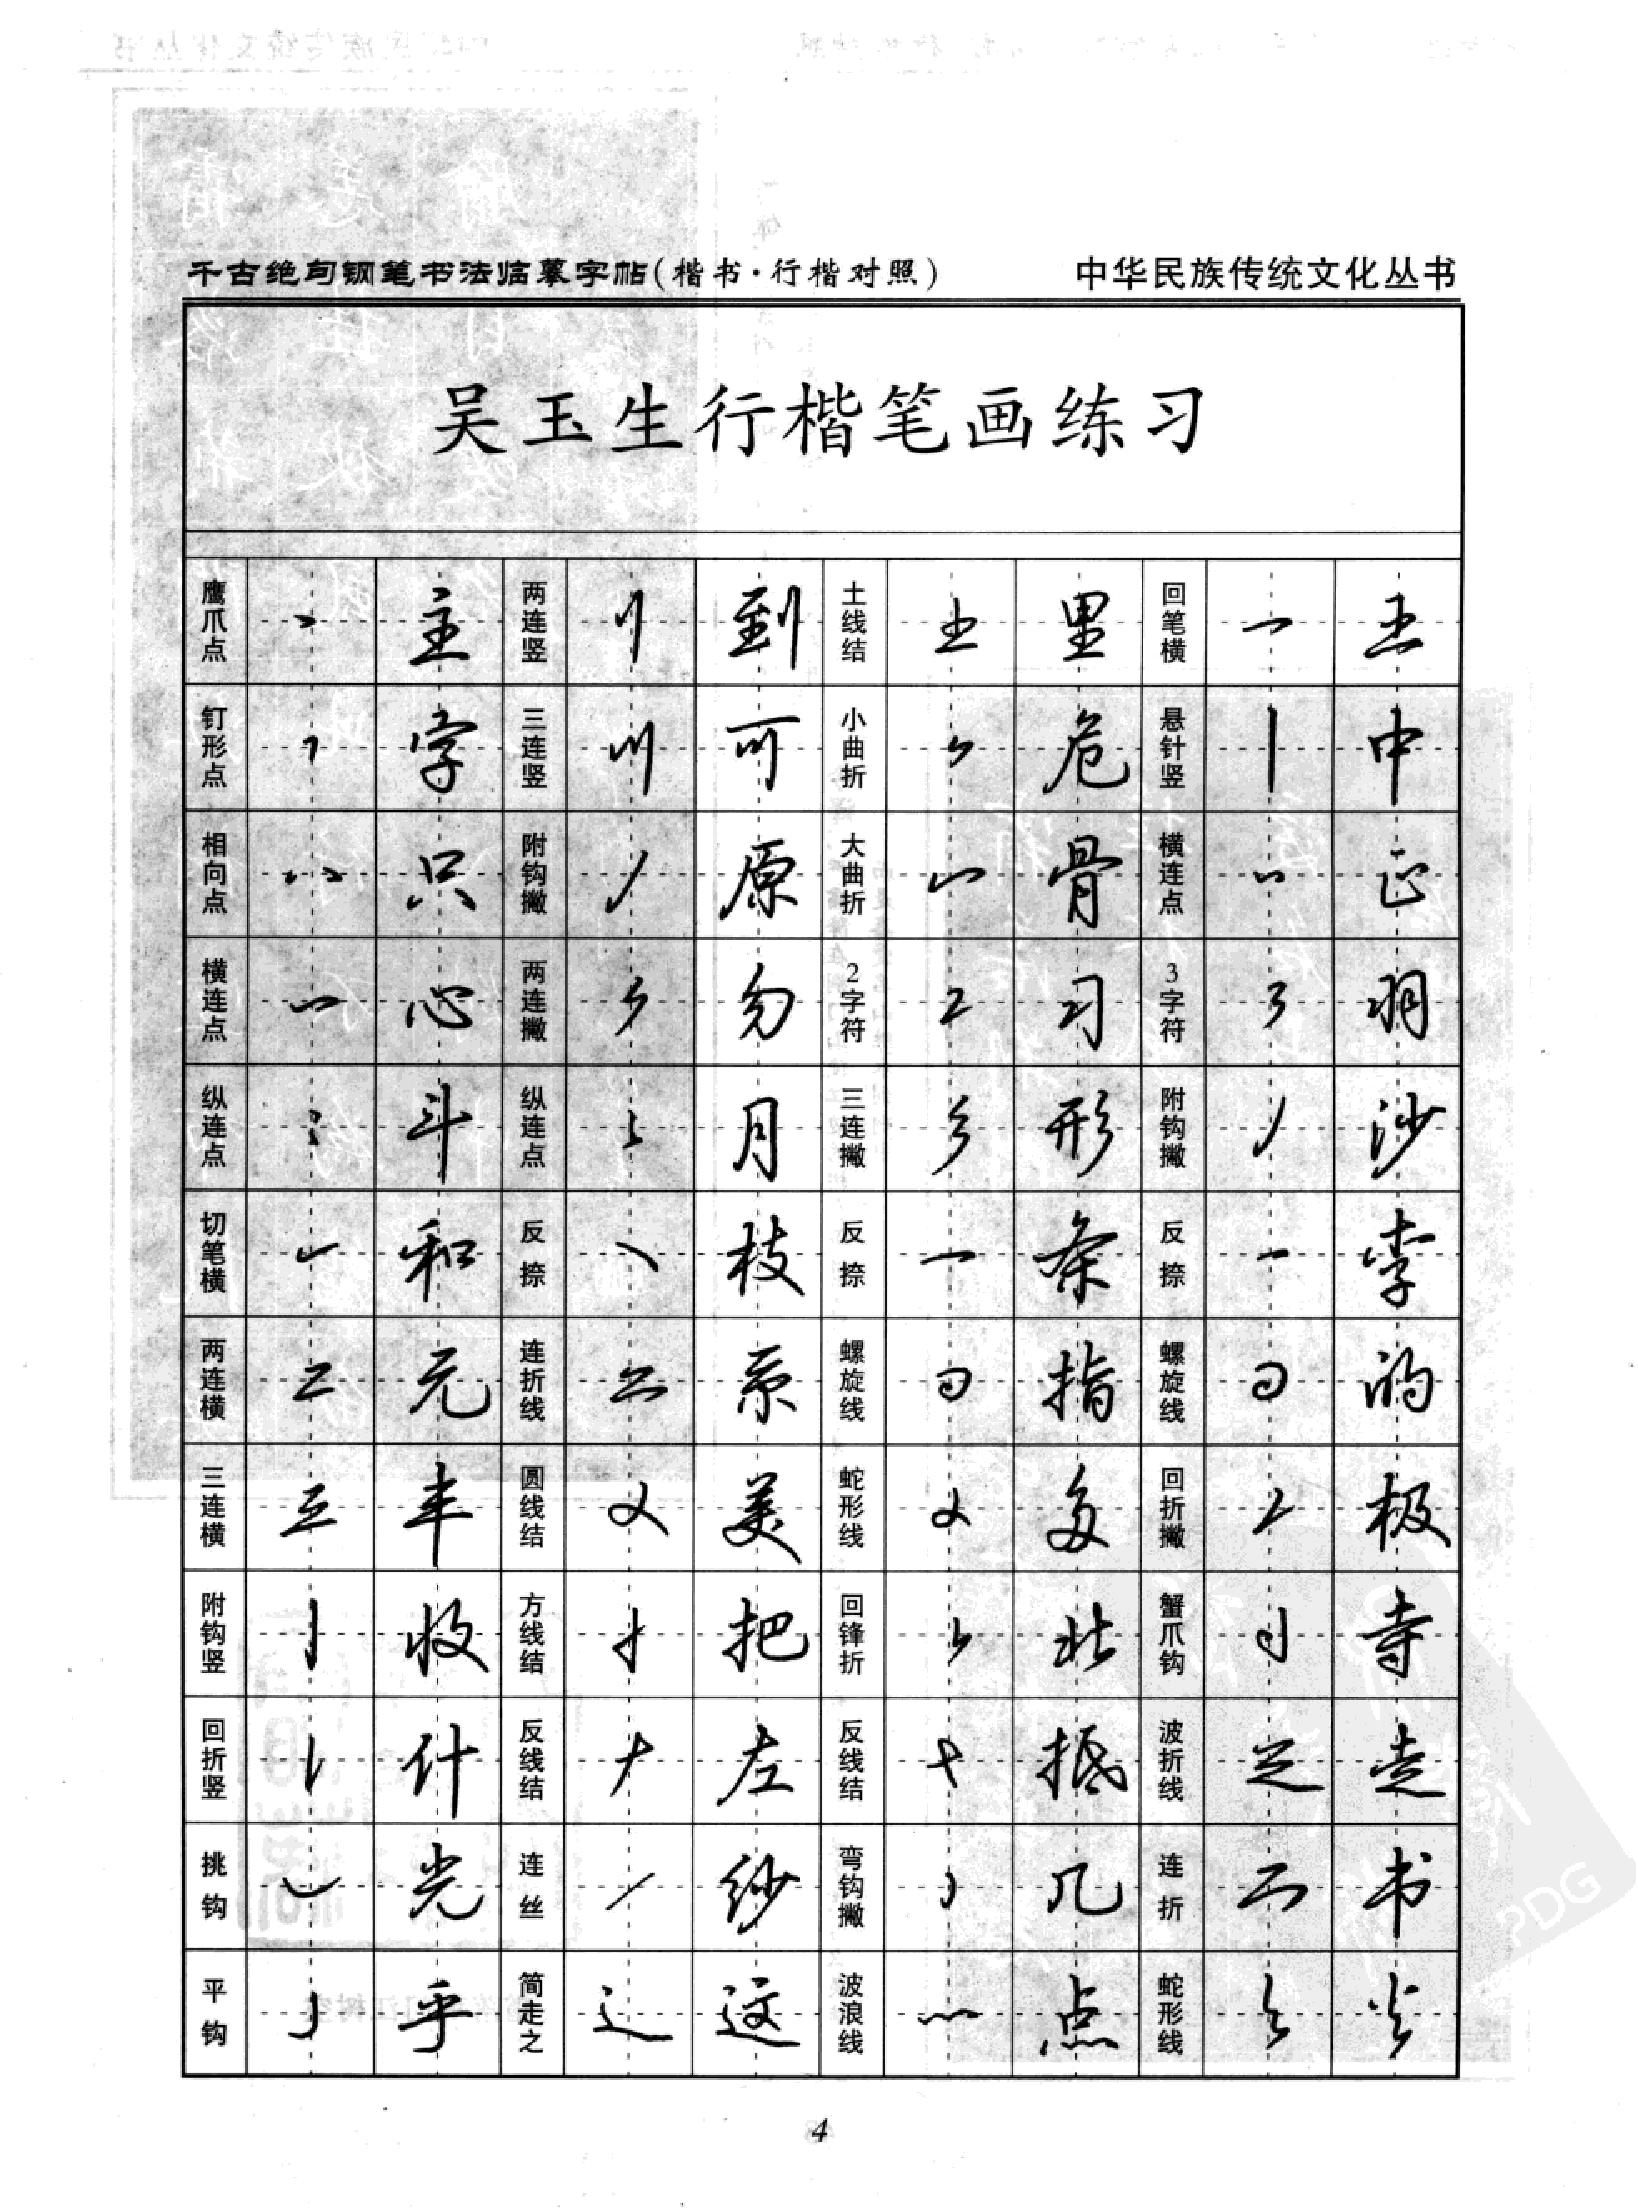 千古绝句钢笔书法临摹字帖(楷书·行楷对照) 中华民族传统文化丛书
吴玉生行楷笔画练习
鹰爪点 主 两连竖 到 土线结 里 回笔横 王
钉形点 字 三连竖 可 小曲折 危 悬针竖 中
相向点 只 附钩撇 原 大曲折 骨 横连点 正
横连点 心 两连撇 勿 2字符 习 3字符 羽
纵连点 斗 纵连点 月 三连撇 形 附钩撇 沙
切笔横 和 反捺 枝 反捺 条 反捺 李
两连横 元 连折线 系 螺旋线 指 螺旋线 的
三连横 丰 圆线结 美 蛇形线 多 回折撇 极
附钩竖 收 方线结 把 回锋折 北 蟹爪钩 寺
回折竖 什 反线结 左 反线结 抵 波折线 走
挑钩 光 连丝 纱 弯钩撇 几 连折 书
平钩 乎 简走之 这 波浪线 点 蛇形线
4
PDG